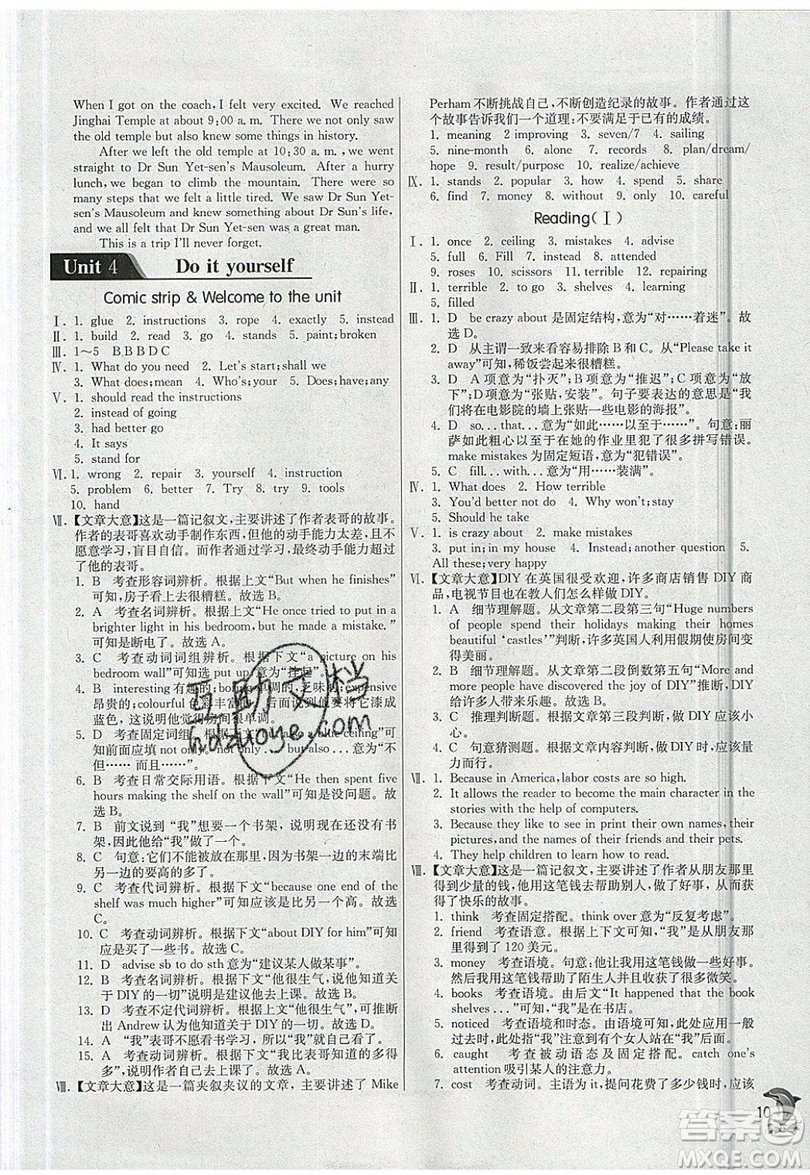 When I got on the coach, I felt very excited. We reached
Jinghai Temple at about 9:00 a. m. there. We not only saw
the old temple but also knew some things in history.
After we left the old temple at 10:30 a. m., we went
straight to Dr Sun Yet-sen's Mausoleum. After a hurry
lunch, we began to climb the mountain. There were so
many steps that we felt a little tired. We saw Dr Sun Yet-
sen's Mausoleum and knew something about Dr Sun's life,
and we all felt that Dr Sun was a great man.
This is a trip I'll never forget.
Unit 4 Do it yourself
Comic strip & Welcome to the unit
Ⅰ. 1. glue 2. instructions 3. rope 4. exactly 5. instead
Ⅱ. 1. build 2. read 3. go 4. stands 5. paint;broken
Ⅲ. 1～5 BBBDC
Ⅳ. 1. What do you need 2. Let's start;shall we
3. What does;mean 4. Who does 5. Does;have;any
Ⅴ. 1. should read the instructions
2. instead of going
3. had better go
4. It says
5. stand for
Ⅵ. 1. wrong 2. repair 3. yourself 4. instruction
5. problem 6. better 7. Try 8. try 9. tools
10. hand
Ⅶ. 【文章大意】这是一篇记叙文,主要讲述了作者表哥的故事。
作者的表哥喜欢动手制作东西,但他的动手能力太弱,且不
愿意学习,盲目自信。而作者通过学习,最终动手能力超过
了他的表哥。
1. B 考查形容词辨析。根据上文“But when he finishes”
可知,房子看上去很糟糕。故选B。
2. A 考查名词辨析。根据上文“He once tried to put in a
brighter light in his bedroom, but he made a mistake.”
可知是断电了。故选A。
3. C 考查动词词组辨析。根据下文“a picture on his
bedroom wall”可知选 put up,意为“挂起”。
4. B interesting 有趣的, boring 乏味的, expensive
昂贵的, colourful 色彩丰富的。后面说到他要把它漆成
蓝色,这说明他觉得房间很单调。
5. A 考查固定词组。根据下文“but also a blue ceiling”可知
前面应填 not only。not only... but also...意为“不
但……而且……”。
6. B 考查日常交际用语。根据“He then spent five
hours making the shelf on the wall”可知是没问题。故
选B。
7. B 前文说到“我”想要一个书架,说明我现在还没有书
架,因此他给“我”做了一个。
8. C 句意:它们不能被用,因为书架一边的末端比另一边
的要高的多了。
9. C 考查代词辨析。根据下文“because one end of the
shelf was much higher”可知。故选C。
10. C 考查动词辨析。根据上文“about DIY for him”可知
应是买了一些书。故选C。
11. D advise sb to do sth 意为“建议某人做某事”。
12. B 考查名词辨析。根据上文“他很生气,说他知道关
于 DIY 的一切”可知他拒绝去上课。故选B。
13. D 考查不定代词辨析。根据上文“他很生气”,可推断
出 Andrew 认为他知道关于 DIY 的一切。故选D。
14. A “我”表哥不愿看书学习,所以“我”就自己看了。
15. A 考查动词辨析。根据下文“我比表哥知道的多得
多”,说明是我去上课了。
Ⅷ. 【文章大意】这是一篇夹叙夹议的文章,主要讲述了 Mike
Perham 不断挑战自己,不断创造纪录的故事。作者通过这
个故事告诉我们一个道理:不要满足于已有的成绩。
1. meaning 2 improving 3. seven/7 4. sailing
5. nine-month 6. alone 7. records 8. plan/dream/
hope 9. result/purpose 10. realize/achieve
Ⅸ. 1. stands 2. popular 3. how 4. spend 5. share
6. find 7. money 8. without 9. only 10. careful
Reading(Ⅰ)
Ⅰ. 1. once 2. ceiling 3. mistakes 4. advise
5. full 6. Fill 7. instead 8. attended
9. roses 10. scissors 11. terrible 12. repairing
Ⅱ. 1. terrible 2. to go 3. shelves 4. learning
5. filled
Ⅲ. 1. D be crazy about 是固定结构,意为“对……着迷”。故
选D。
2. D 从主谓一致来看容易排除B和C。从“Please take it
away”可知,稀饭尝起来很糟糕。
3. D A项意为“扑灭”;B项意为“推迟”;C项意为“放
下”;D项意为“张贴,安装”。句子要表达的意思是“我
们将在电影院的墙上张贴一些电影的海报”。
4. D so...that...意为“如此……以至于……”。句意:丽
萨如此粗心以至于在她的作业里犯了很多拼写错误。
make mistakes 为固定短语,意为“犯错误”。
5. C fill...with...意为“用……装满”。
Ⅳ. 1. What does 2. How terrible
3. You'd better not do 4. Why won't;stay
5. Should he take
Ⅴ. 1. is crazy about 2. make mistakes
3. put in;in my house 4. Instead;another question 5.
All these;very happy
Ⅵ. 【文章大意】DIY 在英国很受欢迎,许多商店销售 DIY 商
品,电视节目也在教人们怎么样做 DIY。
1. A 细节理解题。从文章第二段第三句“Huge numbers
of people spend their holidays making their homes
beautiful ‘castles’”判断,许多英国人利用假期使家变得
美丽。
2. B 细节理解题。从文章第二段倒数第五句“More and
more people have discovered the joy of DIY”推断,DIY
给许多人带来乐趣。故选B。
3. C 推理判断题。根据文章内容判断,做 DIY 应该小
心。
4. C 句意猜测题。根据文章内容判断,做 DIY 应该量
力而行。
Ⅶ. 1. Because in America, labor costs are so high.
2. It allows the reader to become the main character in the
stories with the help of computers.
3. Because they like to see in print their own names, their
pictures, and the names of their friends and their pets.
4. They help children to learn how to read.
Ⅷ. 【文章大意】这是一篇记叙文,主要讲述了作者从朋友那里
得到少量的钱,他用这笔钱去帮助别人,而使自己获得了快
乐的故事。
1. think 考查固定搭配。think over 意为“反复考虑”。
2. friend 考查语意。由语境和上下文可知,“我”是从朋友
那里得到了 120 美元。
3. money 考查语境。句意:他告诉我用这笔钱做他想要我
做的事。我用这笔钱帮助了陌生人并且我看见了他们脸
上的微笑。
4. books 考查语境。由后文“It happened that the book
shelves...”可知,“我”是在书店。
5. noticed 考查语境和时态。由语境可知,此处应用一般
过去时。此处指“我”注意到有个女人站在我们中间。
6. caught 考查被动语态及固定搭配。catch one's
attention 吸引某人的注意力。
7. cost 考查动词。主语为 it,提问花费了多少钱时,应该
10
互助文档
hdzuoye.com
答案圈
MXQE.COM